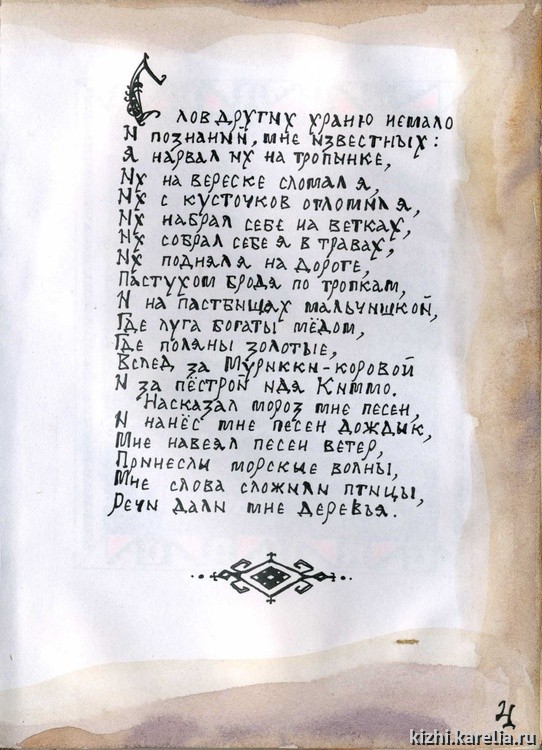 Слов других храню немало
И познаний, мне известных:
Я нарвал их на тропинке,
Их на вереске сломал я,
Их с кусточков отломил я,
Их набрал себе на ветках,
Их собрал себе я в травах,
Их поднял я на дороге,
Пастухом бродя по тропкам,
И на пастбищах мальчишкой,
Где луга богаты мёдом,
Где поляны золотые,
Вслед за Мурикки-коровой
И за пёстрой идя Киммо.
Насказал мороз мне песен,
И нанёс мне песен дождик,
Мне навеял песен ветер,
Принесли морские волны,
Мне слова сложили птицы,
Речи дали мне деревья.
4
kizhi.karelia.ru